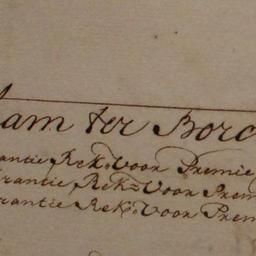 lam ter Borc
rantie Rek: Voor Premie
rantie Rek: Voor Prem
rantie Rek: Voor Prem